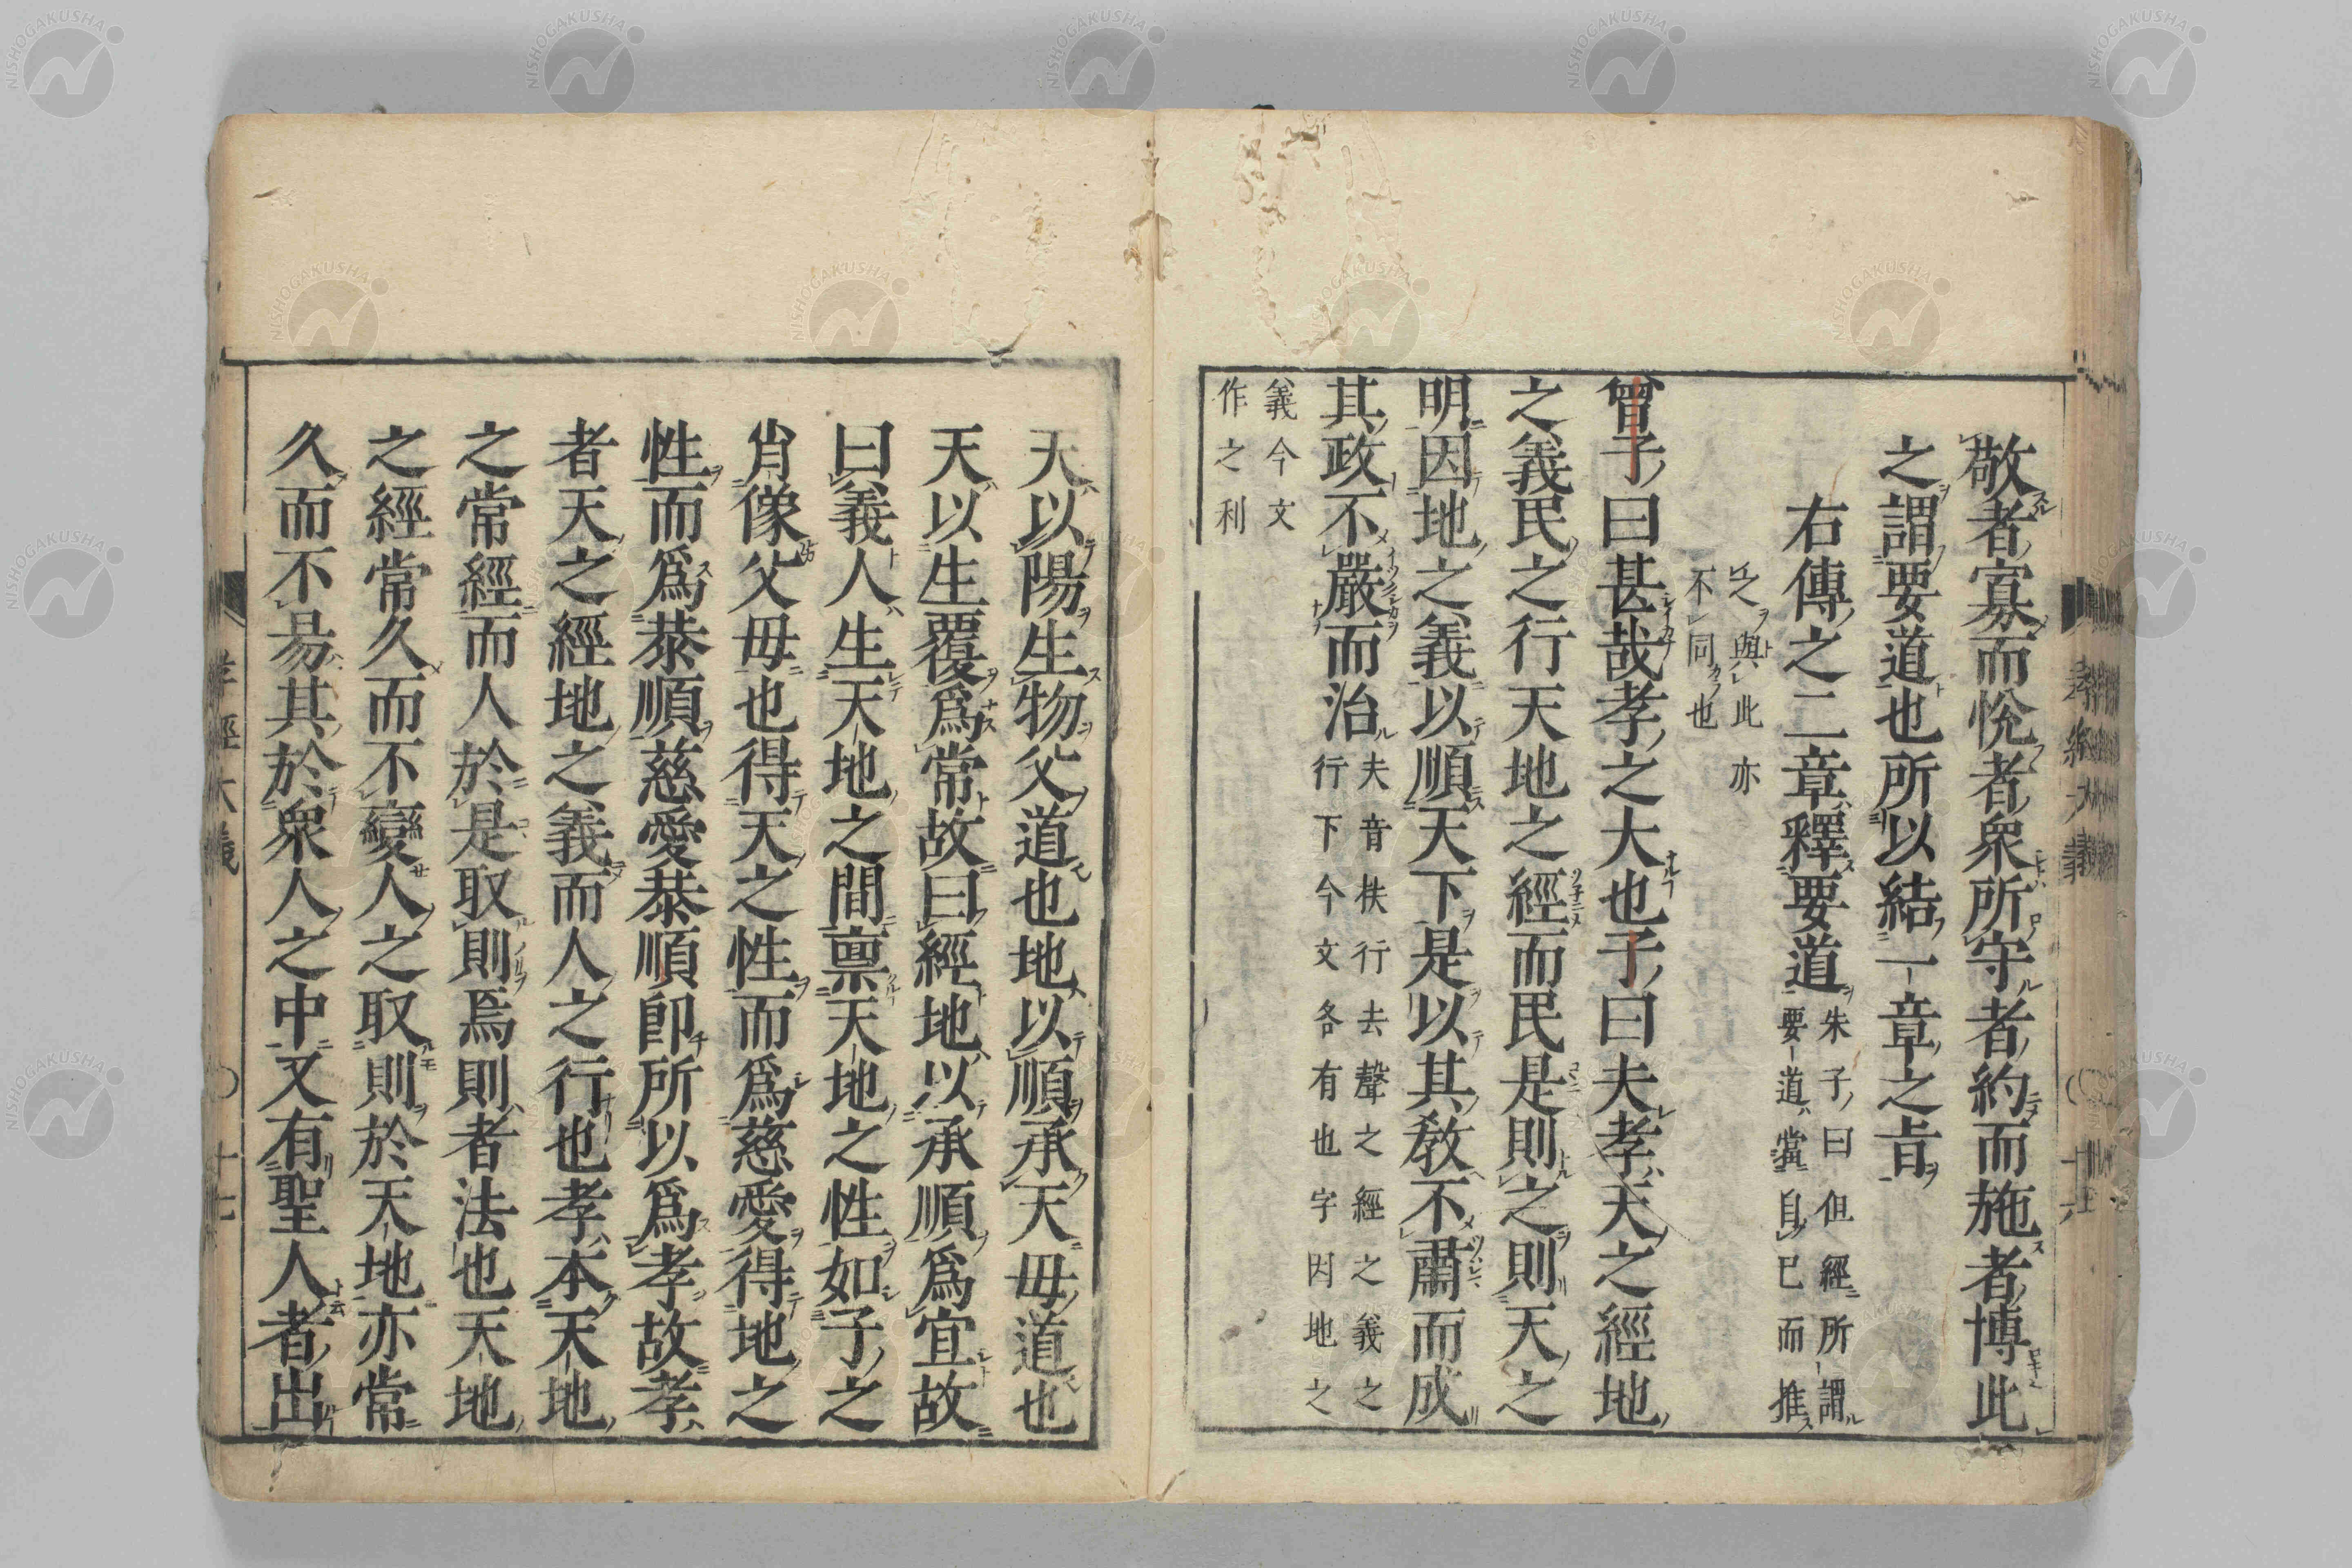 敬者寡而悅者衆所守者約而施者博此
之謂要道也所以結一章之旨
右傳之二章釋要道
朱子曰但經所謂
要道當自已而推
之與此亦
不同也
曾子曰甚哉孝之大也子曰夫孝天之經地
之義民之行天地之經而民是則之則天之
明因地之義以順天下是以其敎不肅而成
其政不嚴而治
夫音扶行去聲之經之義之
行下今文各有也字因地之
義今文
作之利
孝經大義
十六
天以陽生物父道也地以順承天母道也
天以生覆爲常故曰經地以承順爲宜故
曰義人生天地之間禀天地之性如子之
肖像父母也得天之性而爲慈愛得地之
性而爲恭順慈愛恭順卽所以爲孝故孝
者天之經地之義而人之行也孝本天地
之常經而人於是取則焉則者法也天地
之經常久而不變人之取則於天地亦常
久而不易其於衆人之中又有聖人者出
孝經大義
十七
NISHOGAKUSHA